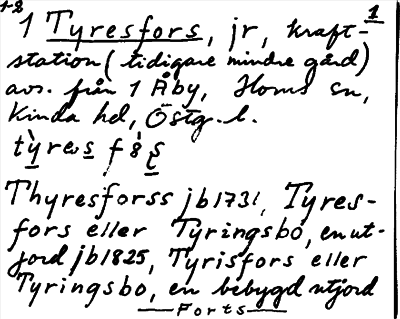 +2 1
1 Tyresfors, jr, kraft-
station (tidigare mindre gård)
avs. från 1 Åby, Horns sn,
Kinda hd, Östg. l.
Thyresforss jb 1731, Tyres-
fors eller Tyringsbo, en ut-
jord jb 1825, Tyrisfors eller
Tyringsbo, en bebygd utjord
—Forts—